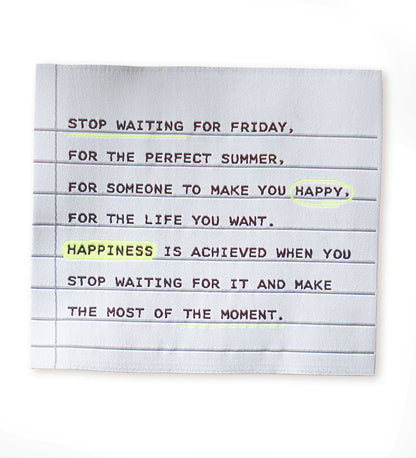 STOP WAITING FOR FRIDAY,
FOR THE PERFECT SUMMER,
FOR SOMEONE TO MAKE YOU HAPPY,
FOR THE LIFE YOU WANT.
HAPPINESS IS ACHIEVED WHEN YOU
STOP WAITING FOR IT AND MAKE
THE MOST OF THE MOMENT.